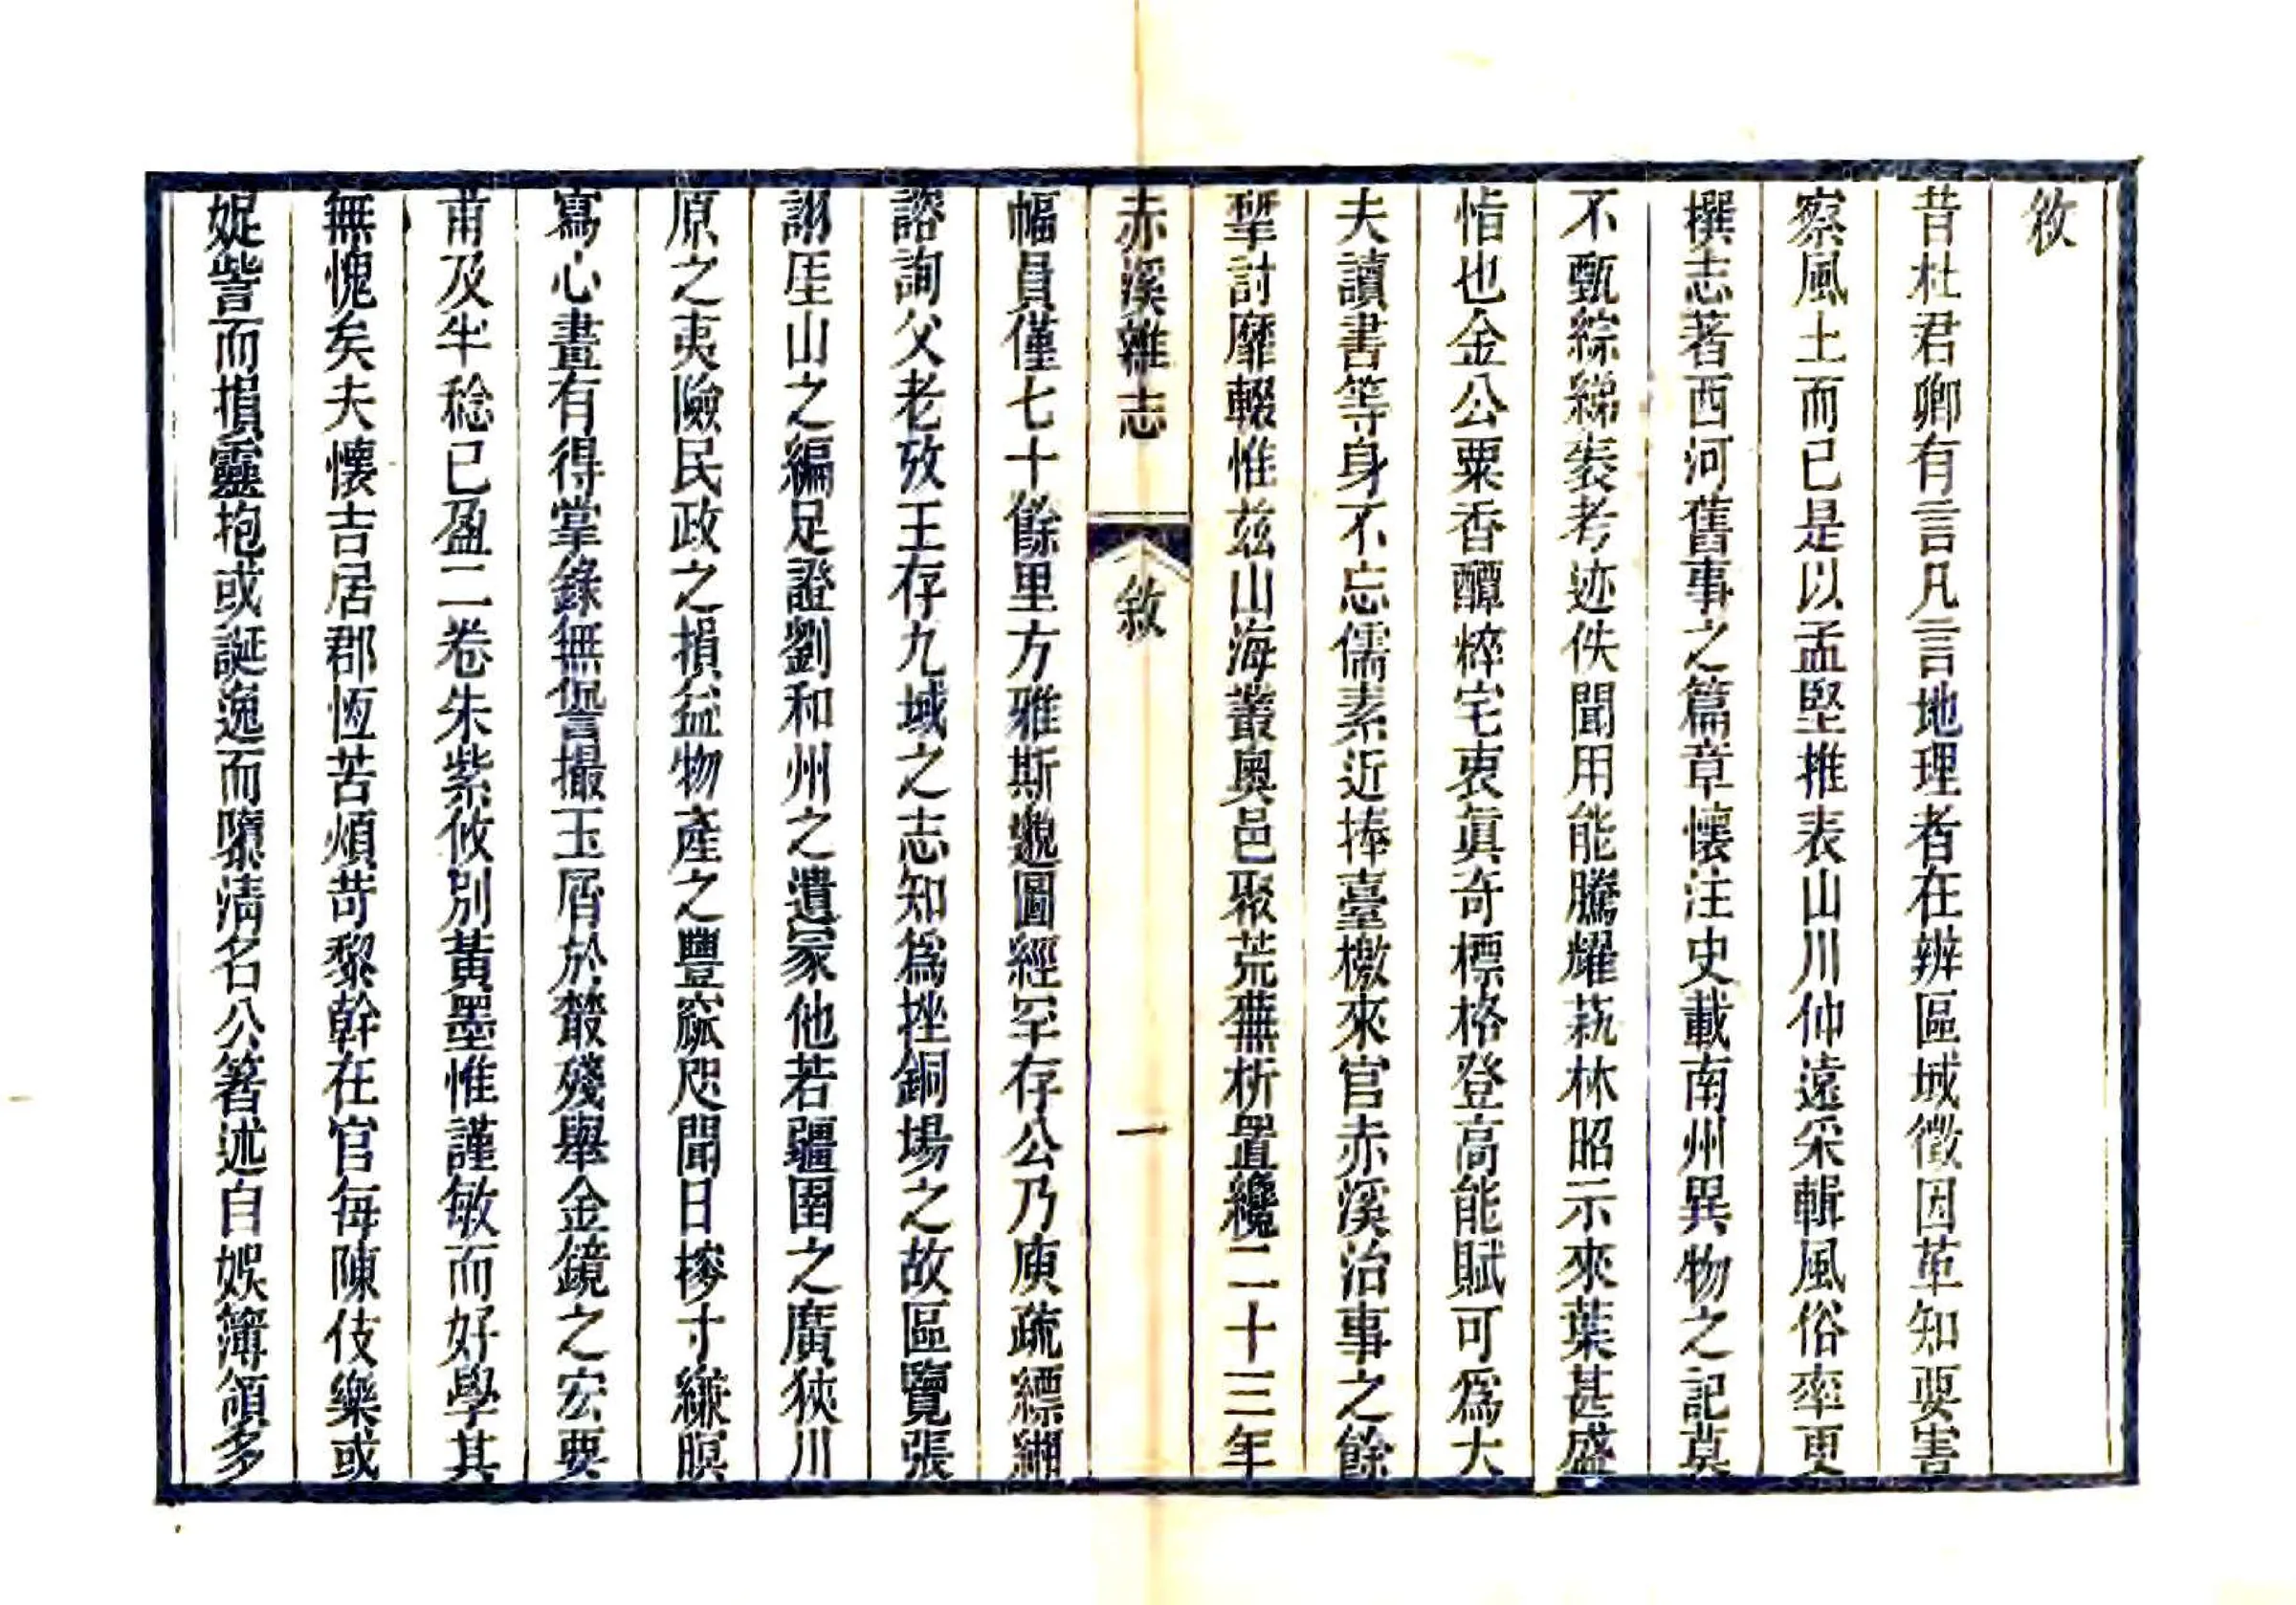 敘
昔杜君卿有言凡言地理者在辨區域徵因革知要害
察風土而已是以孟堅推表山川仲遠采輯風俗率更
撰志著西河舊事之篇章懷注史載南州異物之記莫
不甄綜緜裘考迹佚聞用能騰耀蓺林昭示來葉甚盛
恉也金公粟香醰粹宅衷眞奇標格登高能賦可爲大
夫讀書等身不忘儒素近捧臺檄來官赤溪治事之餘
揅討靡輟惟玆山海叢奧邑聚荒蕪析置纔二十三年
赤溪雜志 敘 一
幅員僅七十餘里方雅斯邈圖經罕存公乃庾疏縹緗
諮詢父老攷王存九域之志知爲挫銅場之故區覽張
詡厓山之編足證劉和州之遺冢他若疆圉之廣狹川
原之夷險民政之損益物產之豐窳咫聞日摎寸縑暝
寫心畫有得掌錄無諐撮玉屑於叢殘舉金鏡之宏要
甫及半稔已盈二卷朱紫攸別黃墨惟謹敏而好學其
無愧矣夫懷吉居郡恆苦煩苛黎幹在官每陳伎樂或
娖訾而損靈抱或誕逸而隳清名公箸述自娛簿領多